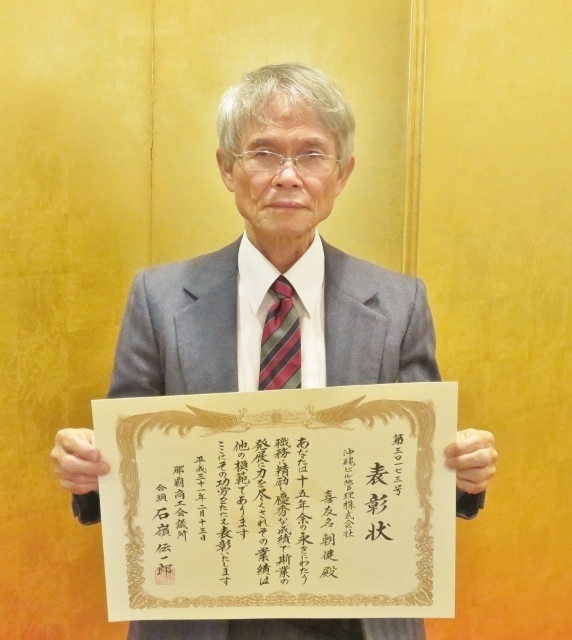 第三〇一七三号
表彰状
沖縄ビル管理株式会社
喜友名朝健殿
あなたは十五年余の永きにわたり
職務に精励し優秀な成績で斯業の
発展に力を尽くされその業績は
他の模範であります
ここにその功労をたたえ表彰いたします
平成三十一年二月十三日
那覇商工会議所
会頭石嶺伝一郎